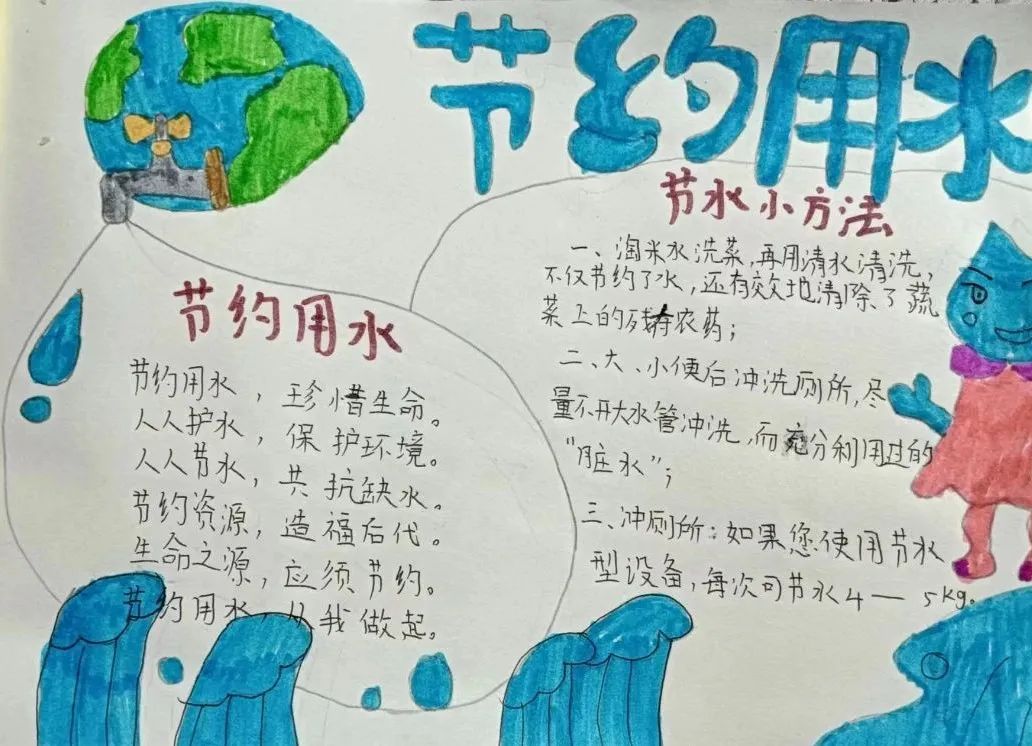 节约用水
节约用水
节约用水，珍惜生命。
人人护水，保护环境。
人人节水，共抗缺水。
节约资源，造福后代。
生命之源，应须节约。
节约用水，从我做起。
节水小方法
一、淘米水洗菜，再用清水清洗，
不仅节约了水，还有效地清除了蔬
菜上的残存农药；
二、大、小便后冲洗厕所，尽
量不开大水管冲洗，而充分利用过的
“脏水”；
三、冲厕所：如果您使用节水
型设备，每次可节水4—5kg。